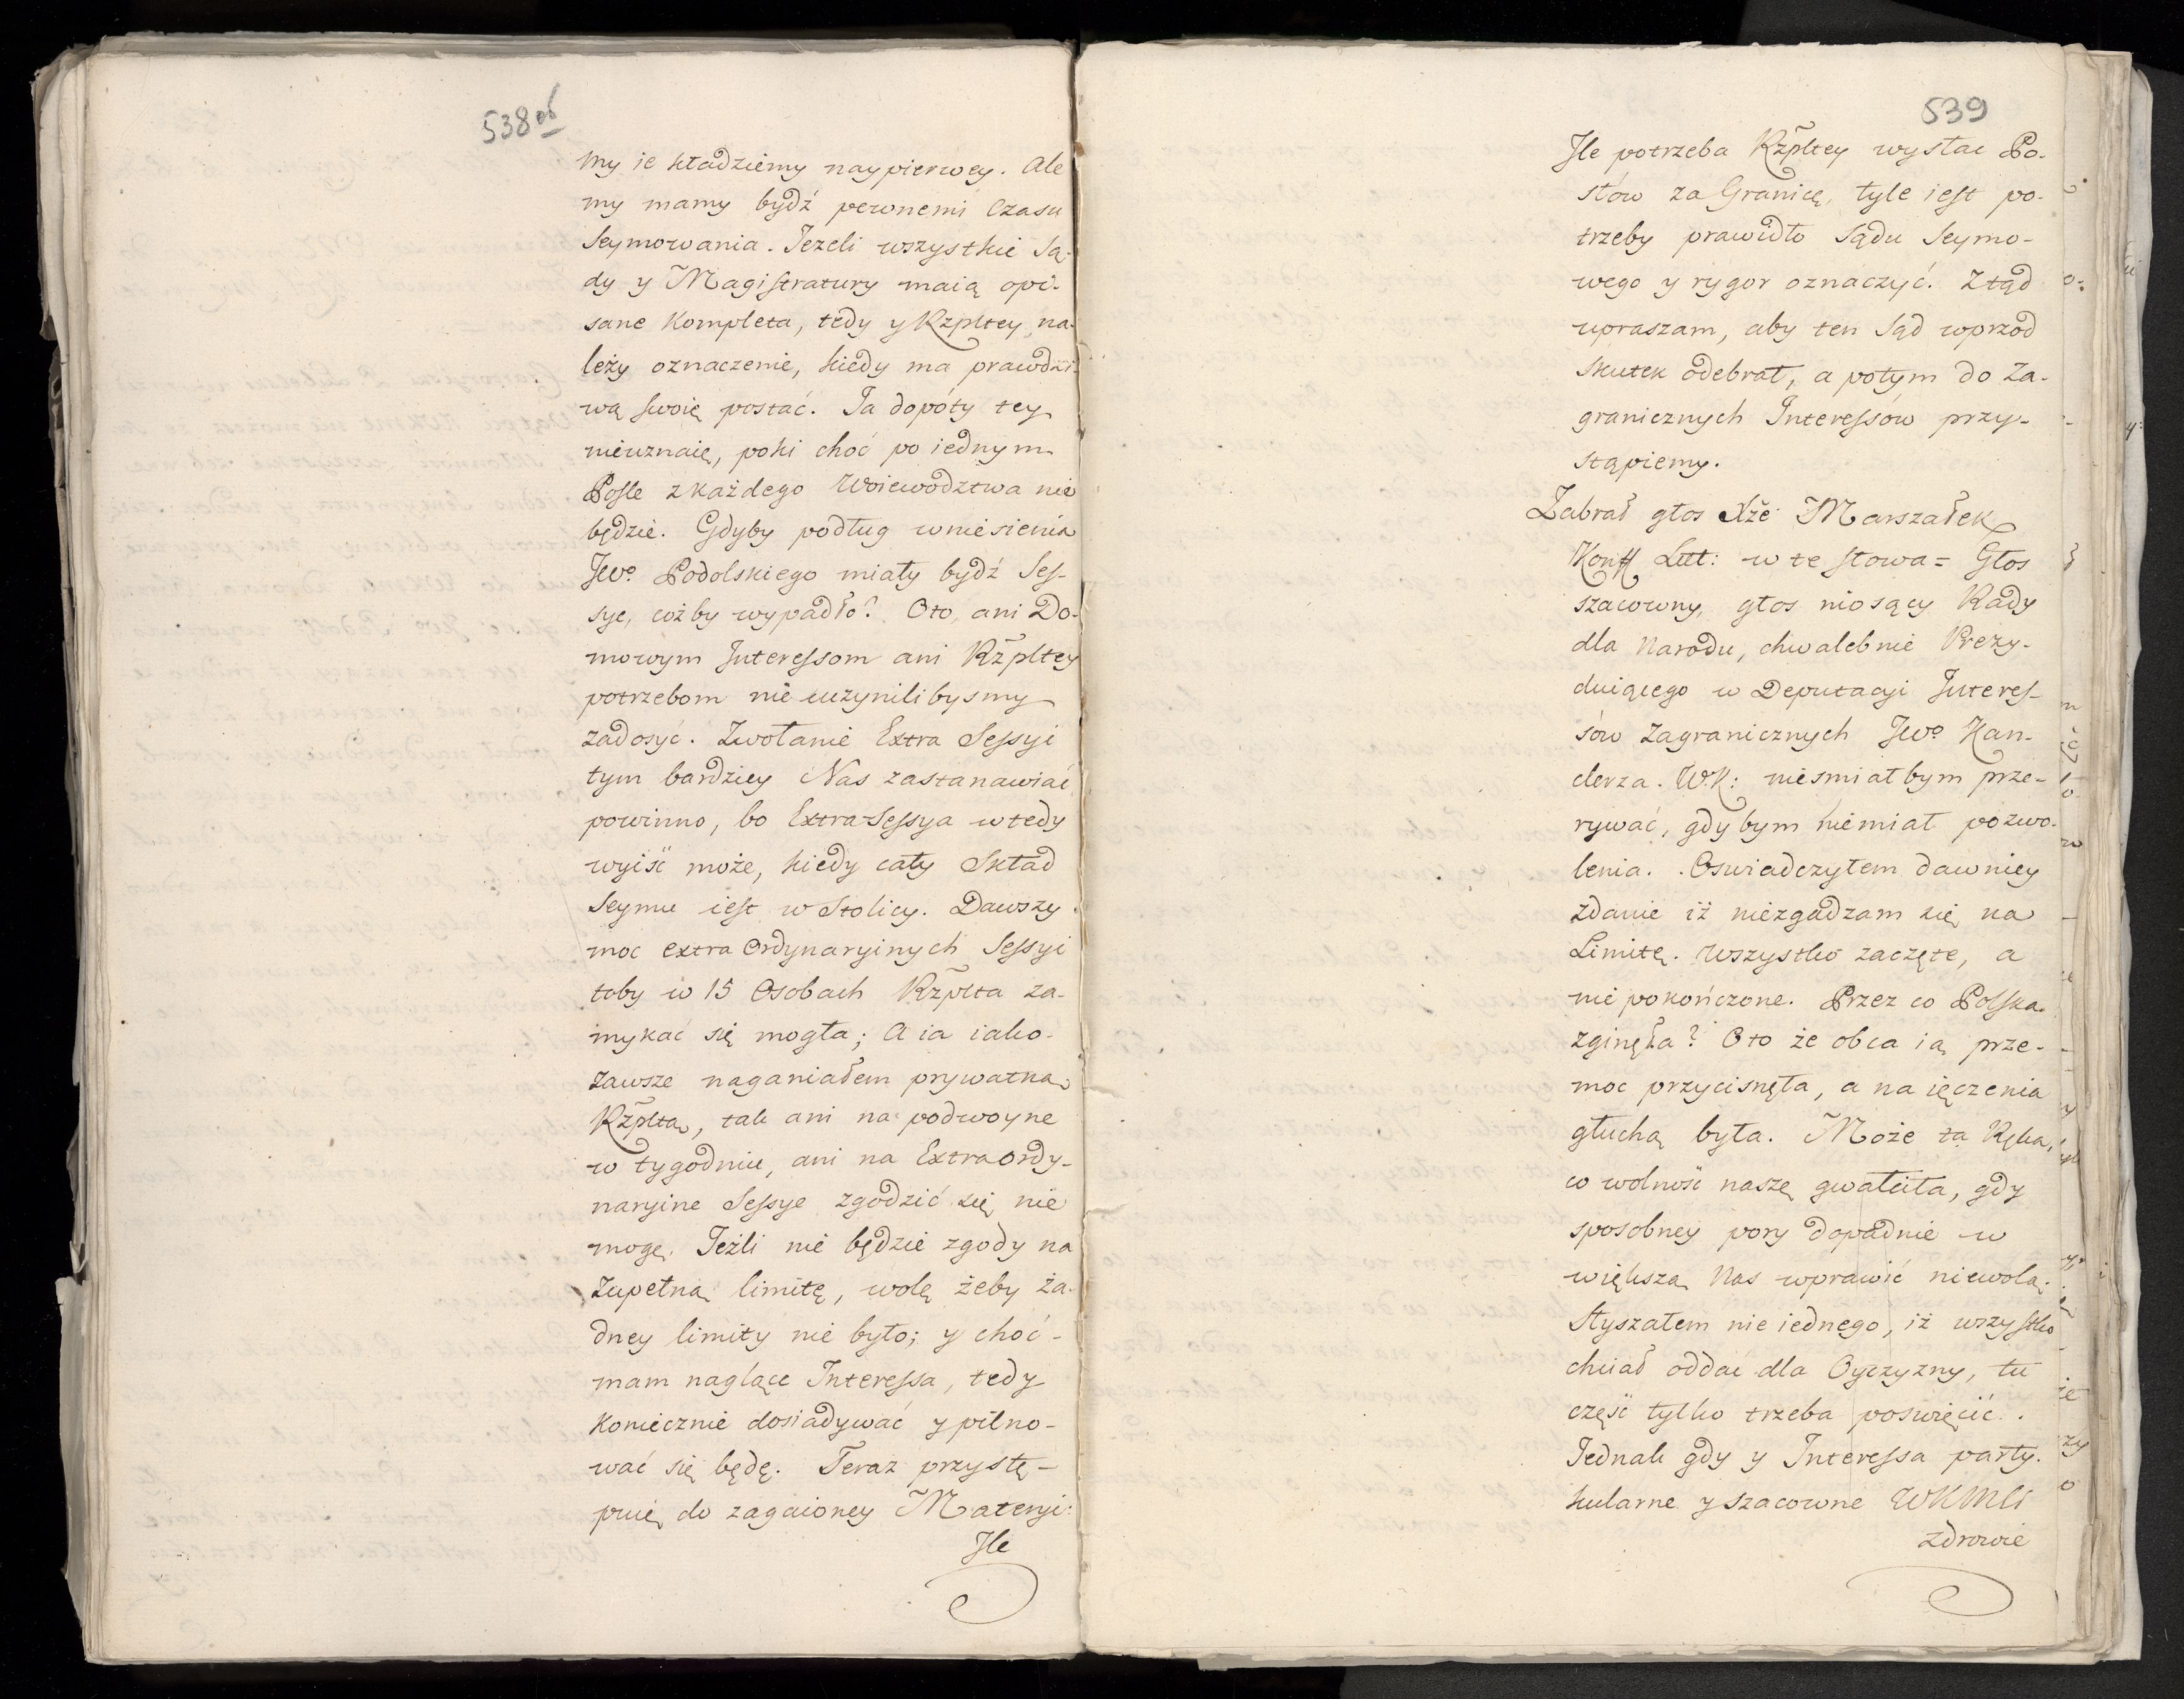 538 об
my ie kładziemy naypierwey. Ale
my mamy bydź pewnemi Czasu
Seymowania. Jezeli wszystkie Są-
dy y Magistratury maią opi-
sane Kompleta, tedy y Rzpltey na-
leży oznaczenie, kiedy ma prawdzi-
wą swoię postać. Ja dopóty tey
nieuznaię, poki choć po iednym
Posle z każdego Woiewodztwa nie
będzie. Gdyby podług wniesienia
JWo Podolskiego miały bydź Ses-
sye, cożby wypadło? Oto, ani Do-
mowym Interessom ani Rzpltey
potrzebom nie uczynilibysmy
zadosyć. Zwołanie Extra Sessyi
tym bardziey Nas zastanawiać
powinno, bo Extra-Sessya wtedy
wyiść może, kiedy cały Skład
Seymu iest w Stolicy. Dawszy
moc extra Ordynaryinych Sessyi
toby w 15 Osobach Rzplta za-
mykać się mogła; A ia iako-
zawsze naganiałem prywatną
Rzpltą, tak ani na podwoyne
w tygodniu, ani na Extraordy-
naryine Sessye zgodzić się nie
mogę. Jeżli nie będzie zgody na
Zupełną limitę, wolę żeby ża-
dney limity nie było; y choć-
mam naglące Interessa, tedy
Koniecznie dosiadywać y pilno-
wać się będę. Teraz przystę-
puię do zagaioney Materyi:
Jle
539
Jle potrzeba Rzpltey wysłac Po-
słów za Granicę, tyle iest po-
trzeby prawidło Sądu Seymo-
wego y rygor oznaczyć. Ztąd
upraszam, aby ten Sąd wprzod
skutek odebrał, a potym do Za-
granicznych Interessow przy-
stąpiemy.
Zabrał głos Xże Marszałek
Konf Litt: w te słowa = Głos
szacowny, głos niosący Rady
dla Narodu, chwalebnie Prezy-
duiącego w Deputacyi Interes-
sów Zagranicznych JWo Kan-
clerza. W.K: niesmiałbym prze-
rywać, gdybym niemiał pozwo-
lenia. Oswiadczyłem dawniey
zdanie iż niezgadzam się na
Limitę. Wszystko zaczęte, a
nie pokończone. Przez co Polska
zginęła? Oto że obca ią prze-
moc przycisnęła, a na ięczenia
głuchą była. Może ta Ręka,
co wolność naszę gwałciła, gdy
sposobney pory dopadnie w
większą Nas wprawić niewolą.
Słyszałem nie iednego, iż wszystko
chciał oddać dla Oyczyzny, tu
część tylko trzeba poswięcić.
Jednak gdy y Interessa party-
kularne y szacowne WKMCi
zdrowie